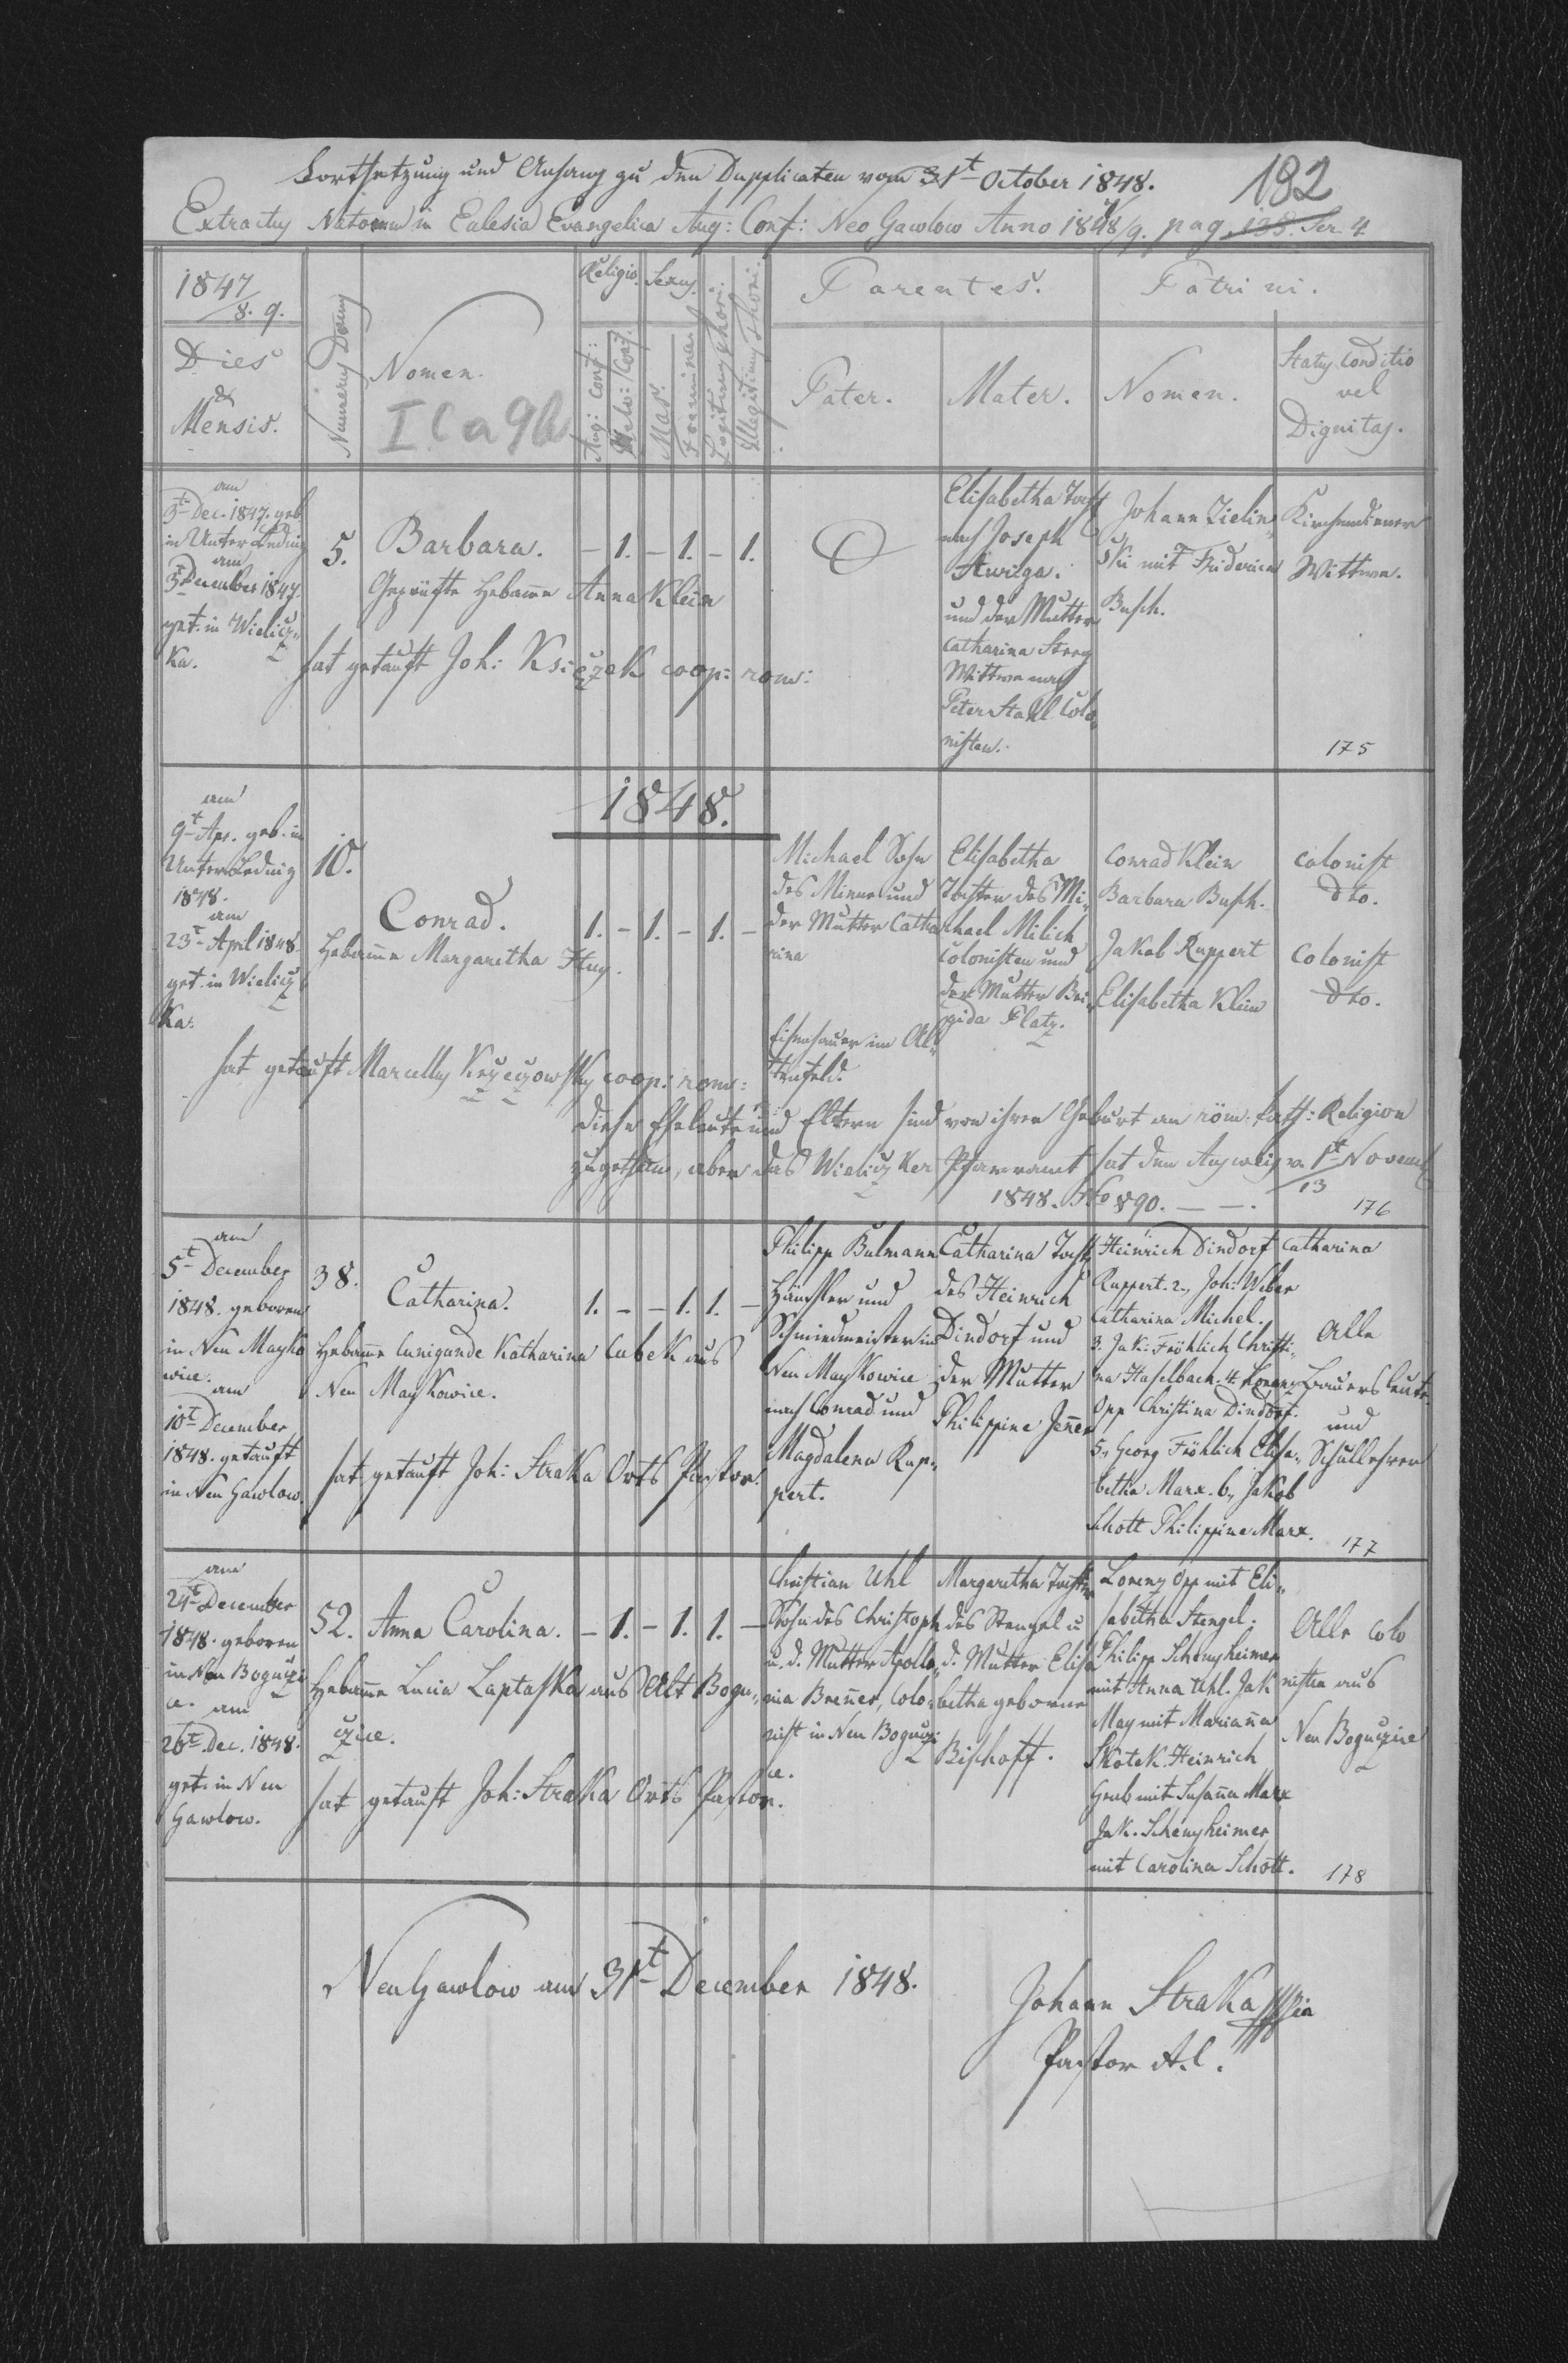 Fortsetzung und Anhang zu den Dupplicaten vom 31t October 1848.
192
Extractus Natorum in Eclesia Evangelica Aug: Conf: Neo Gawlow Anno 1848/9. pag. 138. Ser. 4
1847
8. 9.
Dies
&
Mensis.
Numerus Domus
Nomen.
I C a 9b
Religio.
Aug: Conf:
Helv: Conf.
Sexus.
Mas.
Foeminina
Legitimy thori.
Illegitimy Thori.
Parentes.
Pater.
Mater.
Patrini.
Nomen.
Status Conditio
vel
Dignitas.
am
3t Dec. 1847. geb
in Unter Ledniz
am
5t December 1847.
get. in Wielicz„
ka.
5.
Barbara.
– 1. – 1. – 1.
Geprüfte Hebame Anna Klein
hat getauft Joh: Księżek coop: rom:
Elisabetha Tocht
nach Joseph
und der Mutter
Catharina
Wittwe nach
Peter Stahl Colo„
nisten.
Johann Zielin„
ski mit Friderica
Busch.
Kirchendiener
Wittwe.
175
1848.
am
9t Apr. geb. in
Unter Ledniz
1848.
am
23t April 1848.
get. in Wielicz
ka.
10.
Conrad.
1. – 1. – 1. –
Hebamme Margaretha Hug.
hat getauft Marcellus coop: rom:
Michael Sohn
des und
der Mutter Catha
rina
Eisenhauer im Al„
tenfeld.
Elisabetha
Tochter des Mi„
chael Milich
Colonisten und
der Mutter Bri„
gida Platz.
Conrad Klein
Barbara Busch.
Jakob Ruppert
Elisabetha Klein
Colonist
dto.
Colonist
dto.
Diese Eheleute und Eltern sind von ihrer Geburt an röm: kath: Religion
zugethan, aber das Wieliczker Pfarramt hat den Ausweis v. 1t Novemb
1848. No 890. – –.
13
176
am
5t December
1848. geboren
in Neu Mayko
wice.
am
10t December
1848. getauft
in Neu Gawlow.
38.
Catharina.
1. – – 1. 1. –
Hebame Cunigunde Katharina Cubek aus
Neu Maykowice.
hat getauft Joh: Straka Orts Pastor.
Philipp Bulmann
Häusler und
Schmiedmeister in
Neu Maykowice
nach Conrad und
Magdalena Rup„
pert.
Catharina Tocht
des Heinrich
Dindorf und
der Mutter
Philippine Jenner
Heinrich Dindorf Catharina
Ruppert. 2., Joh: Weber
Catharina Michel.
3. Jak: Fröhlich Christi„
na Haselbach. 4. Lorenz
Opp Christina Dindorf.
5., Georg Fröhlich Elisa„
betha Marx. 6., Jakob
Schott Philippina Marx.
Alle
Bauersleute
und
Schullehrer
177
am
24t December
1848. geboren
in Neu Boguczi
ce. am
26t Dec. 1848.
get. in Neu
Gawlow.
52.
Anna Carolina.
– 1. – 1. 1. –
Hebame Lucia Laptaska aus Alt Bogu„
czice.
hat getauft Joh: Straka Orts Pastor.
Christian Uhl
Sohn des Christoph
u. d. Mutter Apollo„
nia Brenner, Colo„
nist in Neu Boguczi
ce.
Margaretha Tochter
des Stengel u
d. Mutter Elisa
betha geborne
Bischoff.
Lorenz Opp mit Eli„
sabetha Stengel.
Philipp Schenzheimer
mit Anna Uhl. Jak
May mit Marianna
Skotek. Heinrich
Grub mit Susanna Marx
Jak. Schenzheimer
mit Carolina Schott.
Alle Colo
nisten aus
Neu Boguczice
178
Neu Gawlow am 31t December 1848.
Johann Straka
Pastor A.C.